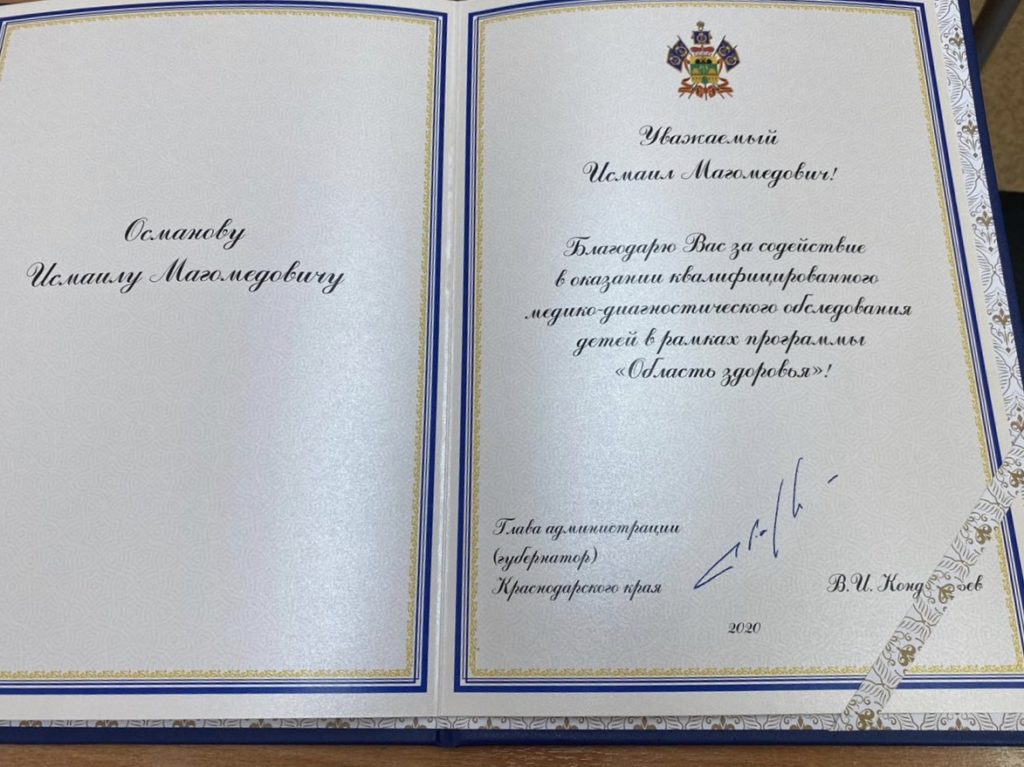 Османову
Исмаилу Магомедовичу
Уважаемый
Исмаил Магомедович!
Благодарю Вас за содействие
в оказании квалифицированного
медико-диагностического обследования
детей в рамках программы
«Область здоровья»!
Глава администрации
(губернатор)
Краснодарского края
В.И.
2020